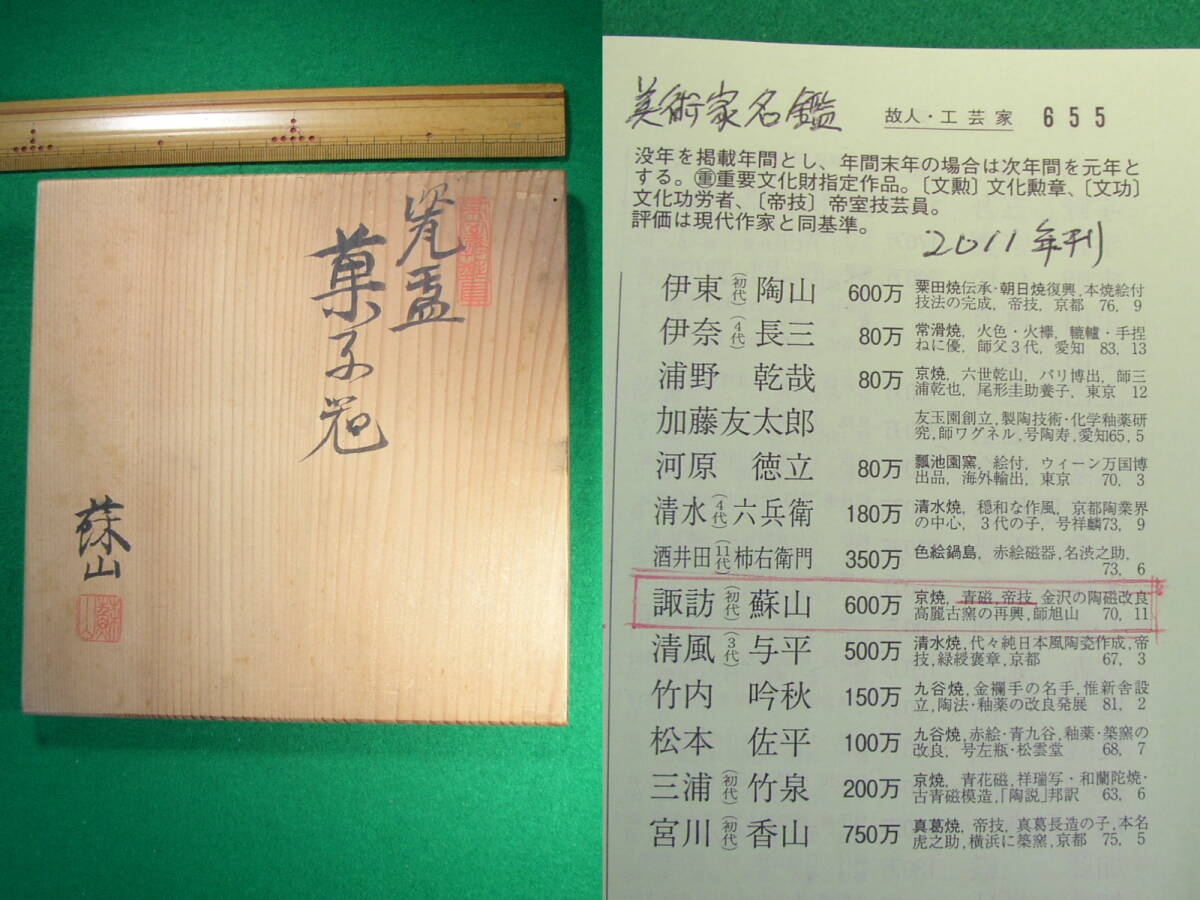 菓子器
蘇山
美術家名鑑
故人・工芸家 655
没年を掲載年間とし、年間末年の場合は次年間を元年と
する。㊩重要文化財指定作品。〔文勲〕文化勲章、〔文功〕
文化功労者、〔帝技〕帝室技芸員。
評価は現代作家と同基準。
2011年刊
伊東(初代)陶山 600万 粟田焼伝承・朝日焼復興,本焼絵付
技法の完成,帝技,京都 76.9
伊奈(4代)長三 80万 常滑焼,火色・火襷,轆轤・手捏
ねに優,師父3代,愛知 83.13
浦野 乾哉 80万 京焼,六世乾山,パリ博出,師三
浦乾也,尾形圭助養子,東京 12
加藤友太郎 友玉園創立,製陶技術・化学釉薬研
究,師ワグネル,号陶寿,愛知65.5
河原 徳立 80万 瓢池園窯,絵付,ウィーン万国博
出品,海外輸出,東京 70.3
清水(4代)六兵衛 180万 清水焼,穏和な作風,京都陶業界
の中心,3代の子,号祥麟73.9
酒井田(11代)柿右衛門 350万 色絵鍋島,赤絵磁器,名渋之助,
73.6
諏訪(初代)蘇山 600万 京焼,青磁,帝技,金沢の陶磁改良
高麗古窯の再興,師旭山 70.11
清風(3代)与平 500万 清水焼,代々純日本風陶瓷作成,帝
技,緑綬褒章,京都 67.3
竹内 吟秋 150万 九谷焼,金襴手の名手,惟新舎設
立,陶法・釉薬の改良発展 81.2
松本 佐平 100万 九谷焼,赤絵・青九谷,釉薬・築窯の
改良,号左瓶・松雲堂 68.7
三浦(初代)竹泉 200万 京焼,青花磁,祥瑞写・和蘭陀焼・
古青磁模造,「陶説」邦訳 63.6
宮川(初代)香山 750万 真葛焼,帝技,真葛長造の子,本名
虎之助,横浜に築窯,京都 75.5